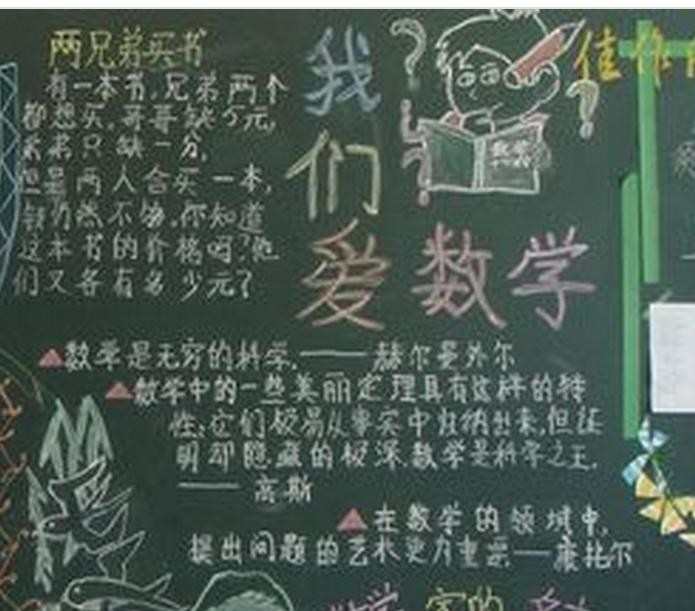 两兄弟买书
有一本书,兄弟两个
都想买,哥哥缺5元,
弟弟只缺一分,
但是两人合买一本,
钱仍然不够,你知道
这本书的价格吗?他
们又各有多少元?
我
们
爱数学
数学
佳作
数学是无穷的科学,——赫尔曼外尔
数学中的一些美丽定理具有这样的特
性:它们极易从事实中归纳出来,但证
明却隐藏的极深.数学是科学之王.
——高斯
在数学的领域中,
提出问题的艺术更为重要——康托尔
数学 家的